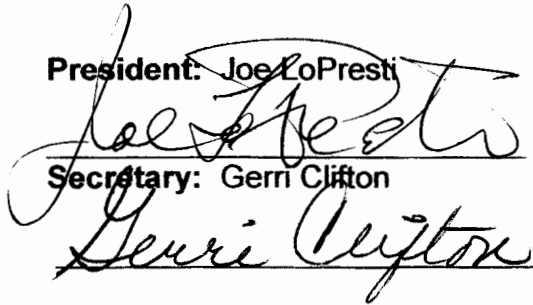 President: Joe LoPresti
Joe LoPresti
Secretary: Gerri Clifton
Gerri Clifton